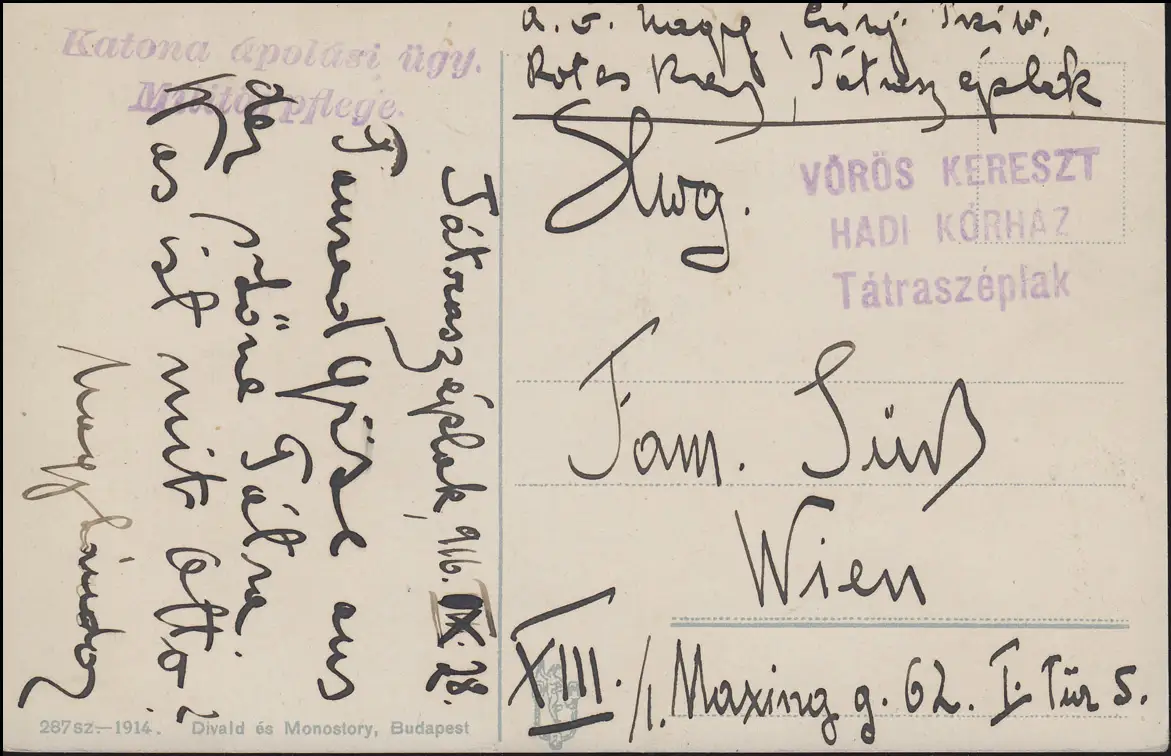 Katona ápolási ügy.
Militärpflege.
Tátraszéplak, 916. IX. 28.
Tausend Grüße aus
der schöne Tátra.
Was ist mit Otto?
Nagy Sándor
287 sz.—1914. Divald és Monostory, Budapest
a. v. Nagy,
Rotes Kreuz, Tátraszéplak
VÖRÖS KERESZT
HADI KÓRHAZ
Tátraszéplak
Fam. Süß
Wien
XIII./1. Maxing g. 62. I. Tür 5.